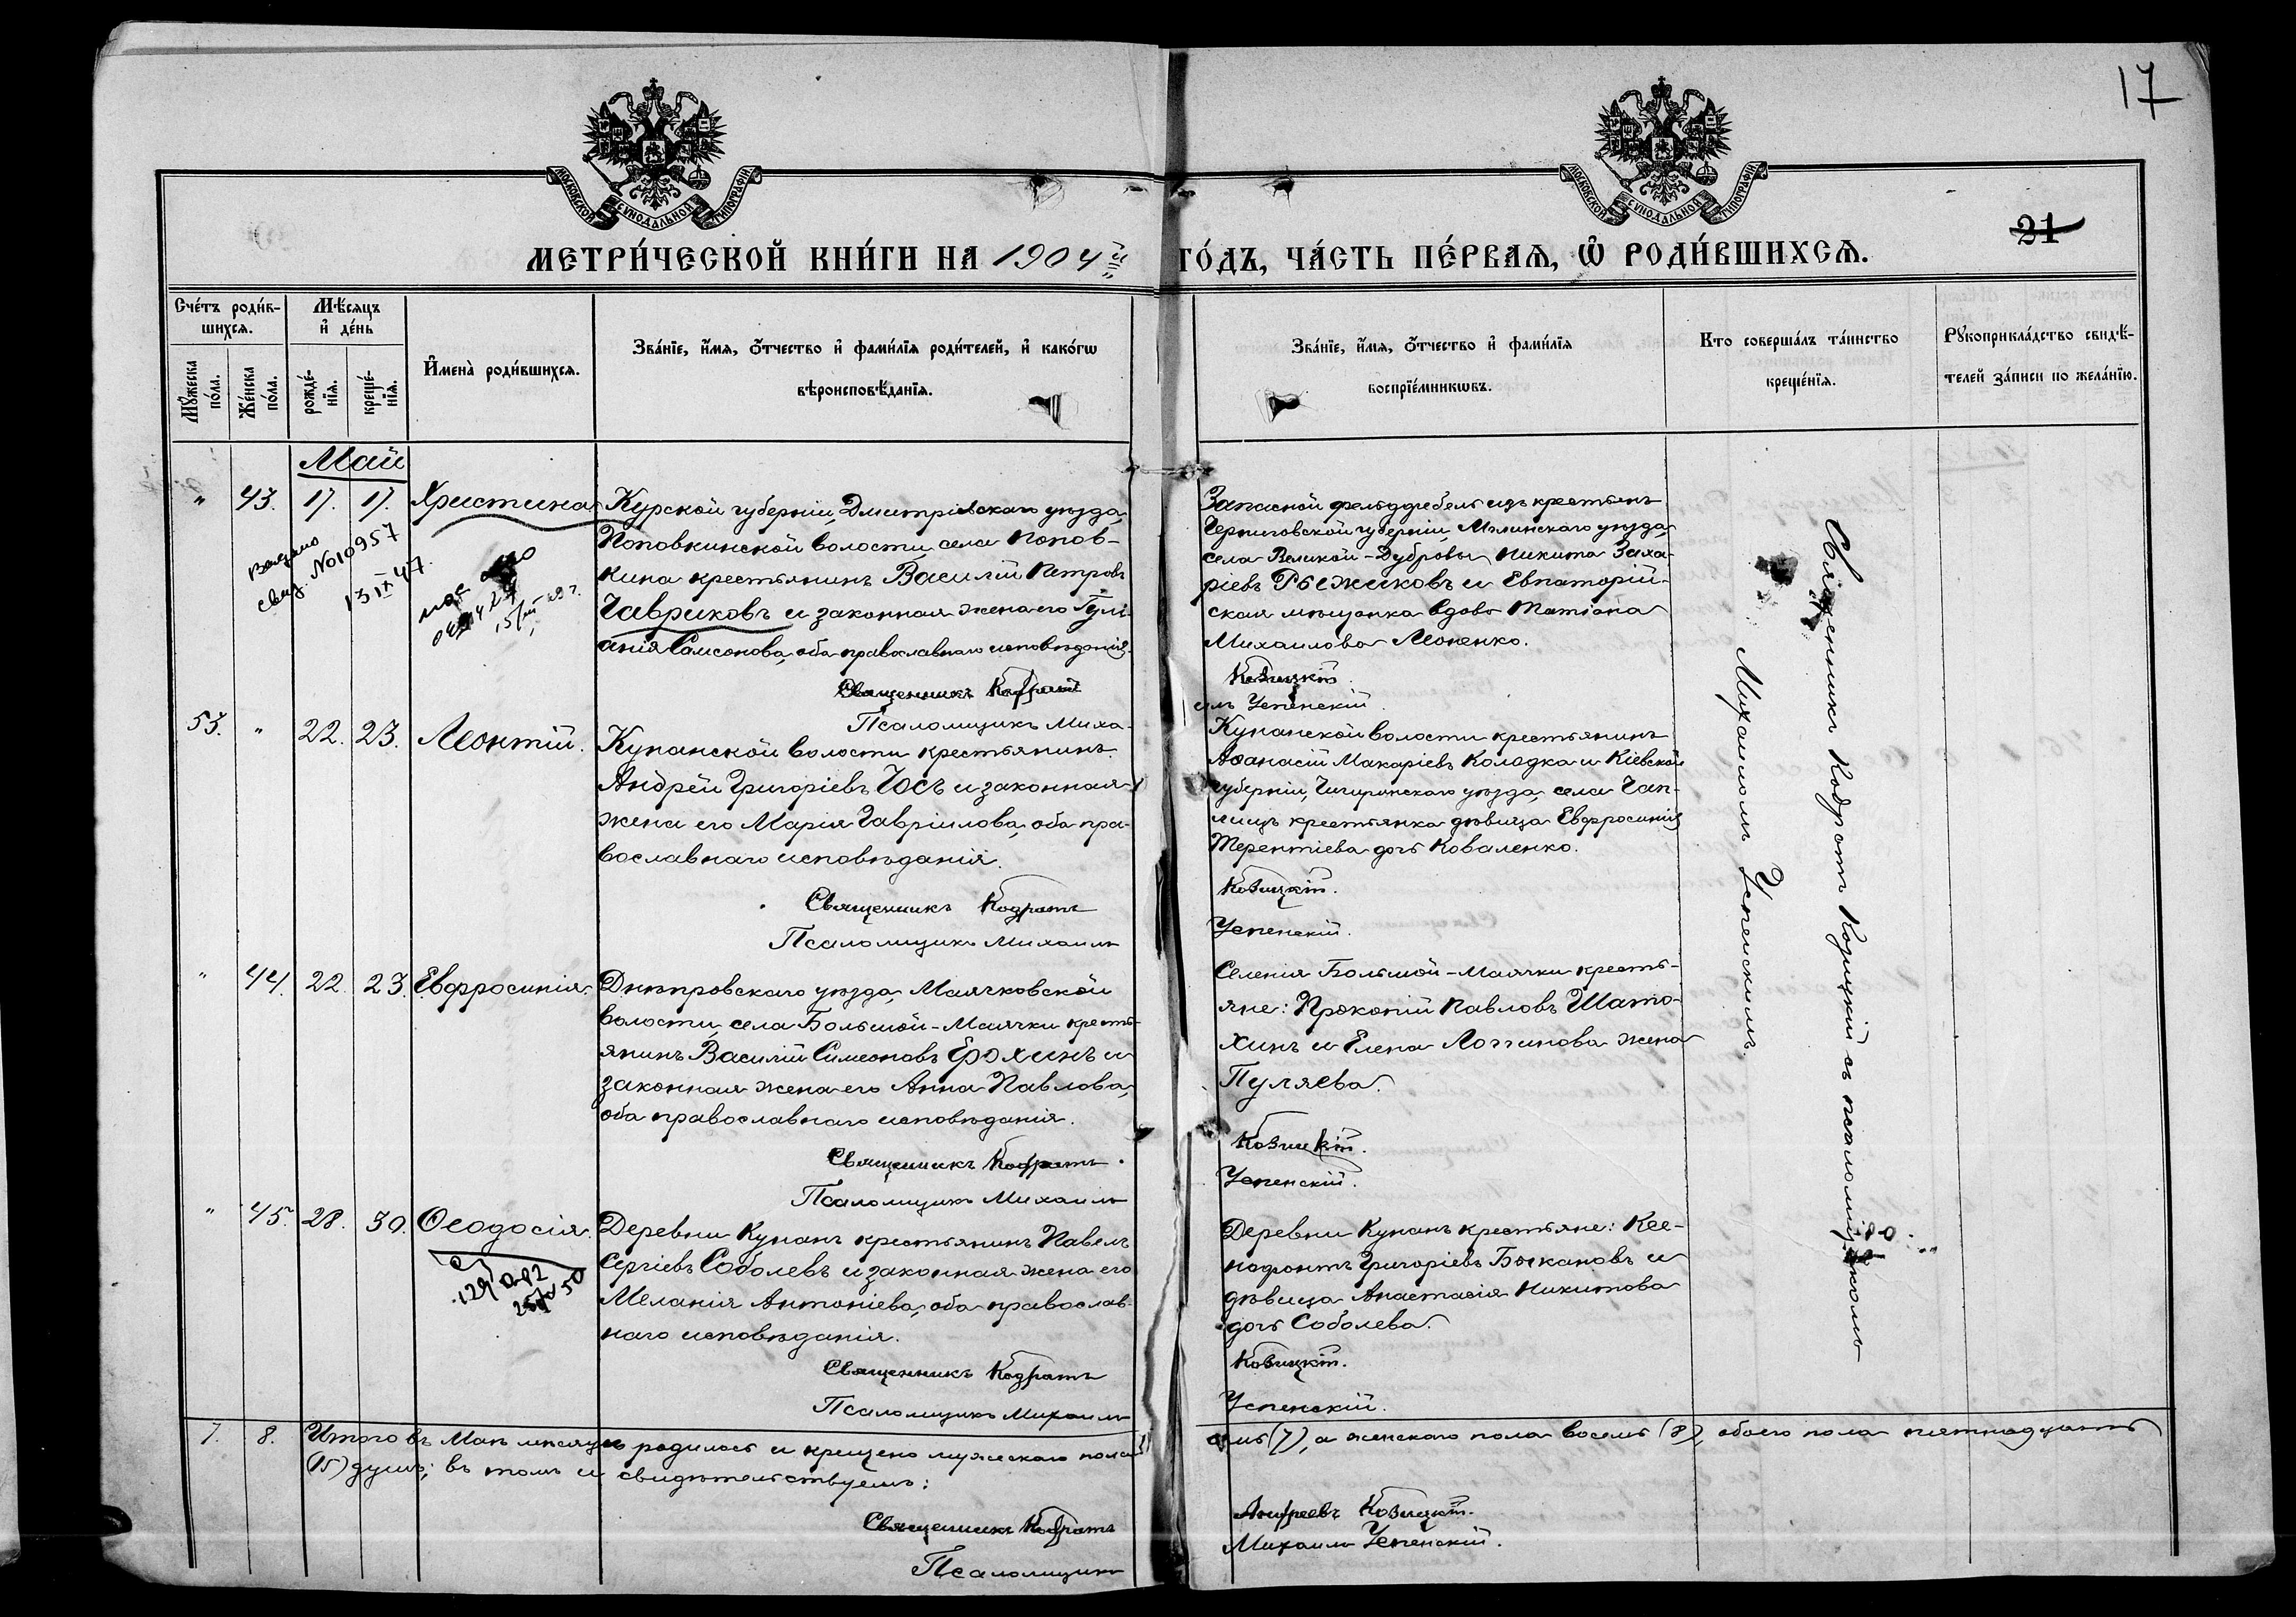 17
МОСКОВСКОЙ СѴНОДАЛЬНОЙ ТИПОГРАФІИ
МОСКОВСКОЙ СѴНОДАЛЬНОЙ ТИПОГРАФІИ
21
МЕТРИ́ЧЕСКОЙ КНИ́ГИ НА 1904й ГО́ДЪ, ЧА́СТЬ ПЕ́РВАѦ, Ѽ РОДИ́ВШИХСѦ.
Сче́тъ роди́в-
шихсѧ.
Мꙋ́жеска по́ла.
Же́нска по́ла.
Мѣ́сѧцъ
и҆ де́нь
рожде́-
нїѧ.
креще́-
нїѧ.
И҆мена̀ роди́вшихсѧ.
Зва́нїе, и҆́мѧ, ѻ҆́тчество и҆ фами́лїѧ роди́телей, и҆ како́гѡ
вѣроисповѣ́данїѧ.
Зва́нїе, и҆́мѧ, ѻ҆́тчество и҆ фами́лїѧ
воспрїе́мникѡвъ.
Кто соверша́лъ та́инство
креще́нїѧ.
Рꙋкоприкла́дство свидѣ́-
телей за́писи по жела́нїю.
Май
" 43. 17. 17. Христина
Выдано
свид. №010957
13 IX 47.
Курской губерніи, Дмитріевскаго уѣзда,
Поповкинской волости, села Попов-
кина крестьянинъ Василій Петровъ
Гавриковъ и законная жена его Іулі-
анія Самсонова, оба православнаго исповѣданія.
Священникъ Кодратъ
Псаломщикъ Миха-
Запасной фельдфебель изъ крестьянъ
Черниговской губерніи, Мглинскаго уѣзда,
села Великой-Дубровы Никита Заха-
ріевъ Рыжиковъ и Евпаторій-
ская мѣщанка вдова Татіана
Михаилова Леоненко.
Козицкій.
илъ Успенскій.
53. " 22. 23. Леонтій.
Купанской волости крестьянинъ
Андрей Григоріевъ Гось и законная
жена его Марія Гавріилова, оба пра-
вославнаго исповѣданія.
Священникъ Кодратъ
Псаломщикъ Михаилъ
Купанской волости крестьянинъ
Аѳанасій Макаріевъ Колодка и Кіевской
губерніи, Чигиринскаго уѣзда, села Чап-
лищъ крестьянка дѣвица Евфросинія
Терентіева дочь Коваленко.
Козицкій.
Успенскій.
" 44. 22. 23. Евфросинія.
Днѣпровскаго уѣзда, Маячковской
волости, села Большой-Маячки кресть-
янинъ Василій Симеоновъ Ерохинъ и
законная жена его Анна Павлова,
оба православнаго исповѣданія.
Священникъ Кодратъ
Псаломщикъ Михаилъ
Селенія Большой-Маячки кресть-
яне: Прокопій Павловъ Шато-
хинъ и Елена Логгинова жена
Пуляева.
Козицкій.
Успенскій.
" 45. 28. 30. Ѳеодосія.
Деревни Купань крестьянинъ Павелъ
Сергіевъ Соболевъ и законная жена его
Меланія Антоніева, оба православ-
наго исповѣданія.
Священникъ Кодратъ
Псаломщикъ Михаилъ
Деревни Купань крестьяне: Ксе-
нофонтъ Григоріевъ Быкановъ и
дѣвица Анастасія Никитова
дочь Соболева.
Козицкій.
Успенскій.
Священникъ Кодратъ Козицкій съ псаломщикомъ
Михаиломъ Успенскимъ.
7. 8. Итого въ Маѣ мѣсяцѣ родилось и крещено мужескаго пола семь (7), а женскаго пола восемь (8), обоего пола пятнадцать
(15) душъ; въ томъ и свидѣтельствуемъ:
Священникъ Кодратъ Андреевъ Козицкій.
Псаломщикъ Михаилъ Успенскій.